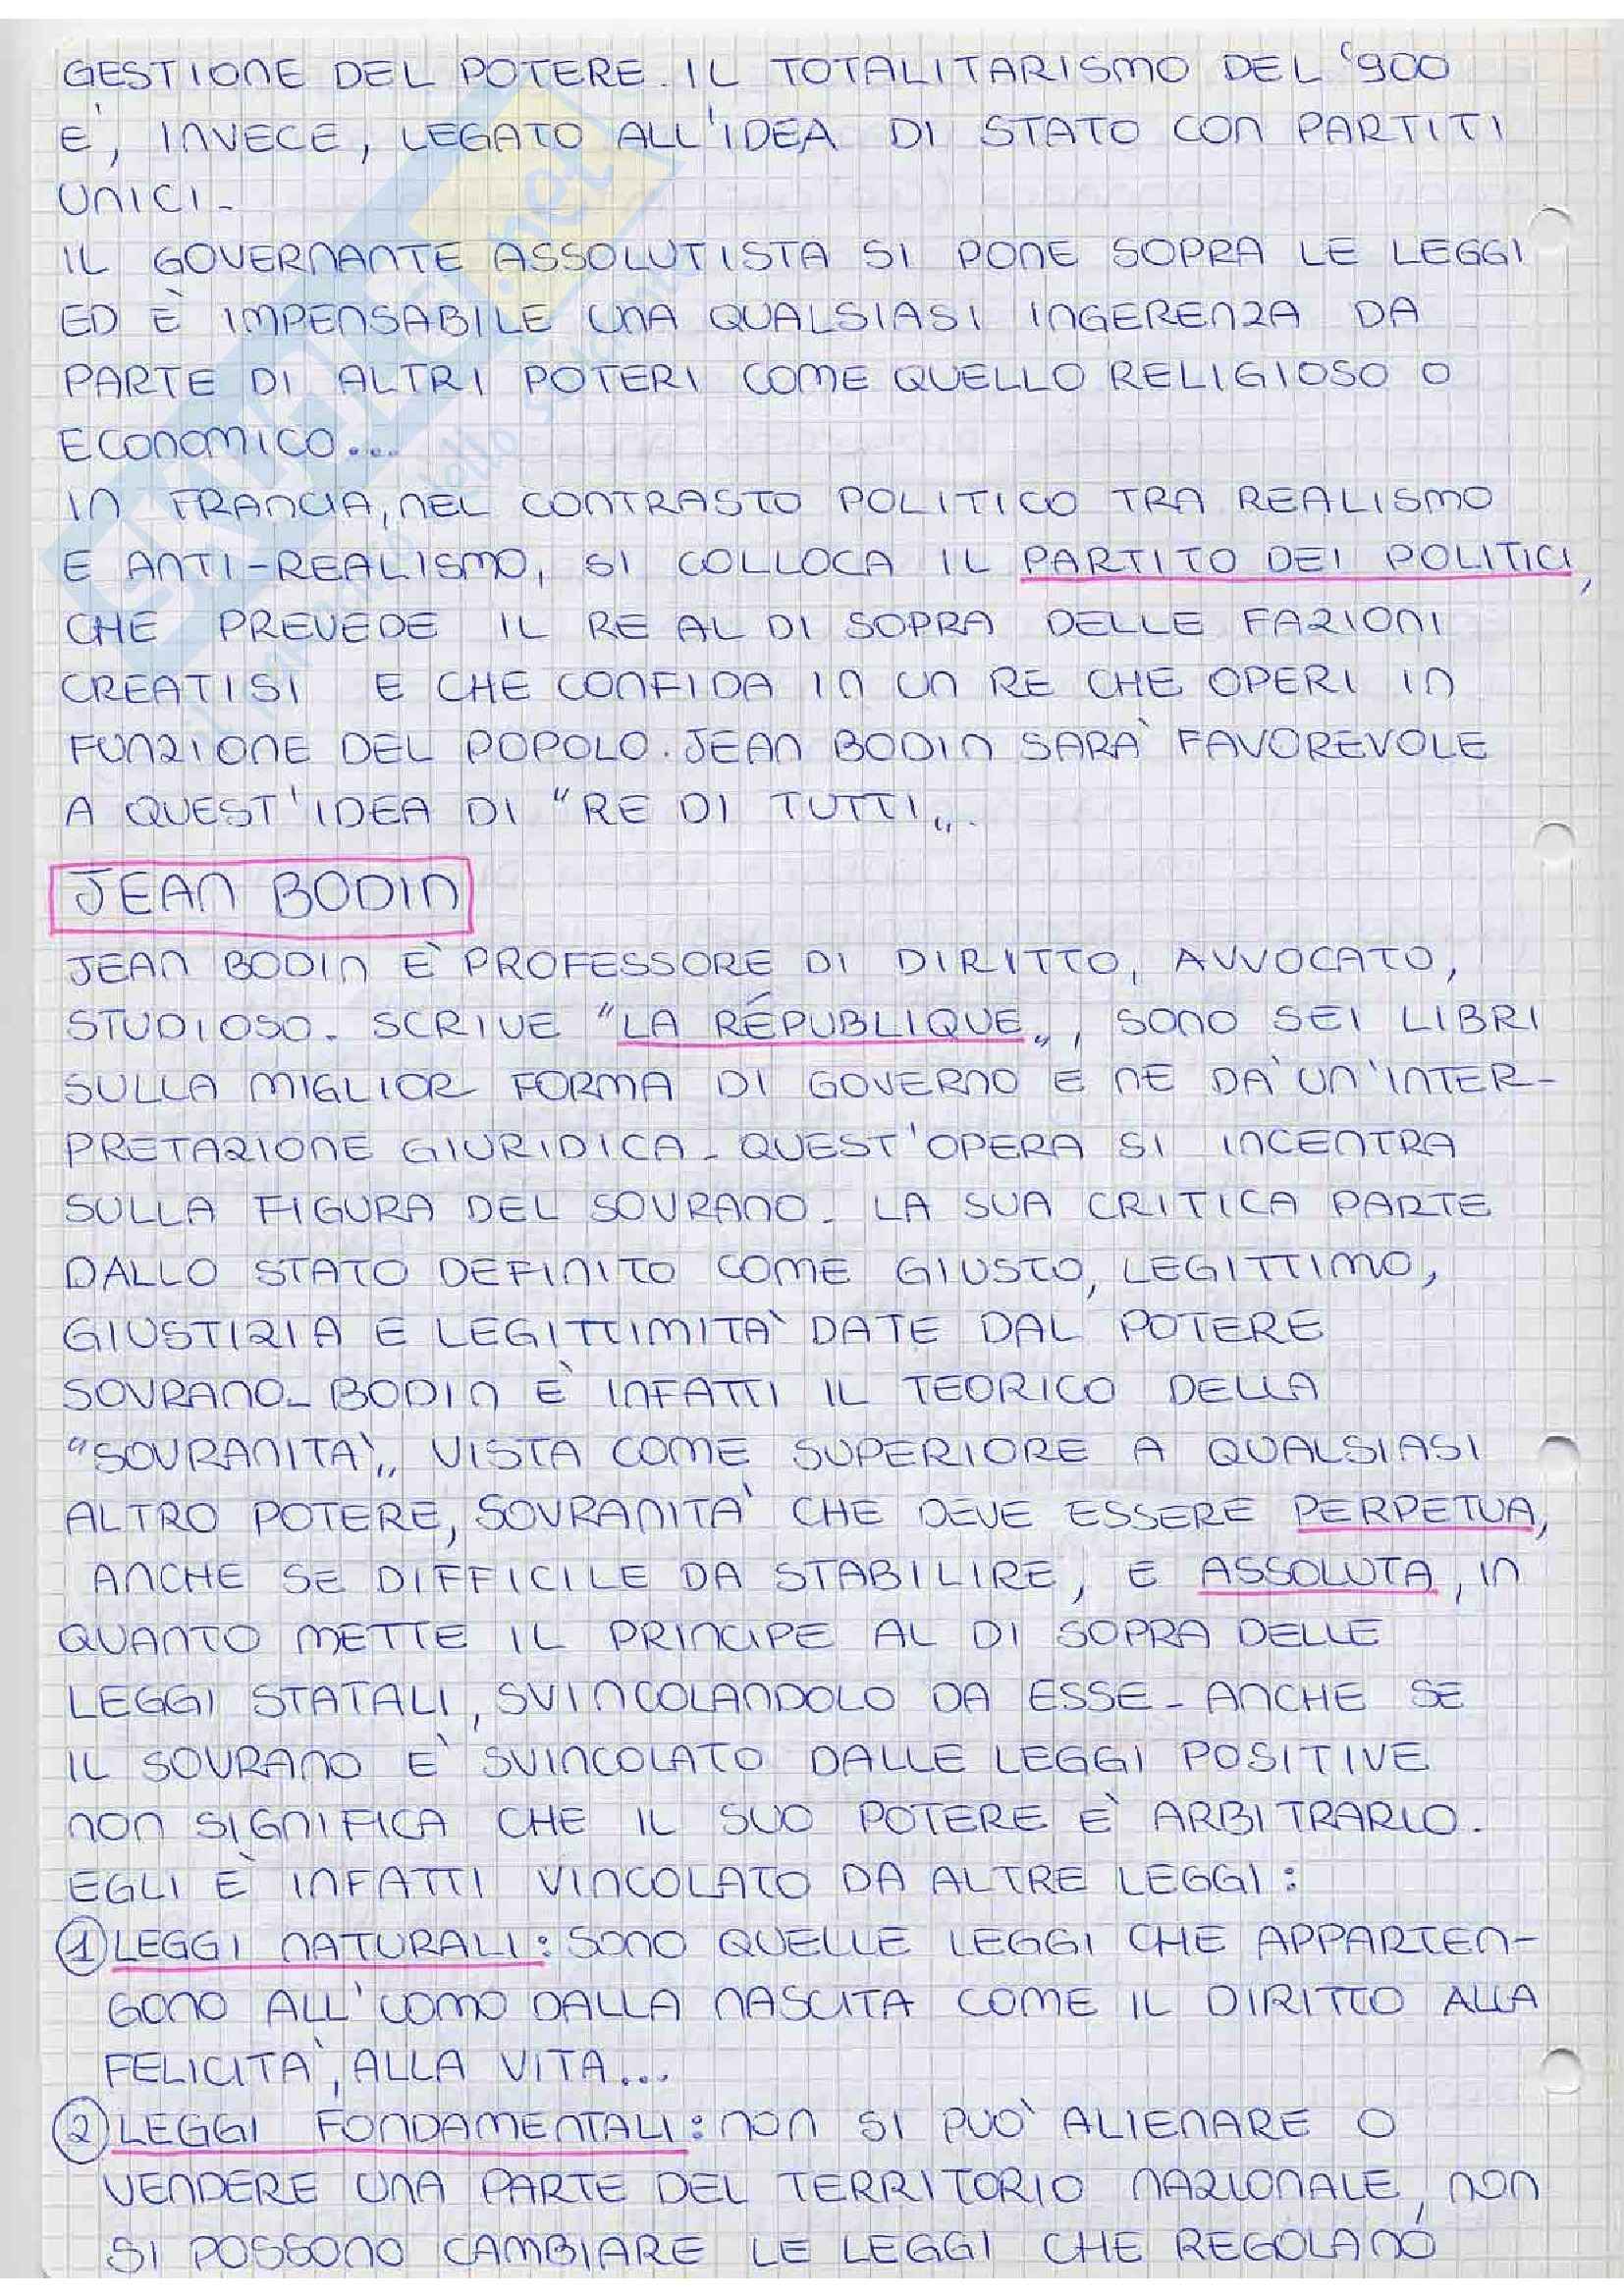 GESTIONE DEL POTERE. IL TOTALITARISMO DEL '900
E', INVECE, LEGATO ALL'IDEA DI STATO CON PARTITI
UNICI.
IL GOVERNANTE ASSOLUTISTA SI PONE SOPRA LE LEGGI
ED È IMPENSABILE UNA QUALSIASI INGERENZA DA
PARTE DI ALTRI POTERI COME QUELLO RELIGIOSO O
ECONOMICO...
IN FRANCIA, NEL CONTRASTO POLITICO TRA REALISMO
E ANTI-REALISMO, SI COLLOCA IL PARTITO DEI POLITICI,
CHE PREVEDE IL RE AL DI SOPRA DELLE FAZIONI
CREATISI E CHE CONFIDA IN UN RE CHE OPERI IN
FUNZIONE DEL POPOLO. JEAN BODIN SARA' FAVOREVOLE
A QUEST'IDEA DI "RE DI TUTTI".
JEAN BODIN
JEAN BODIN E' PROFESSORE DI DIRITTO, AVVOCATO,
STUDIOSO. SCRIVE "LA RÉPUBLIQUE", SONO SEI LIBRI
SULLA MIGLIOR FORMA DI GOVERNO E NE DA' UN'INTER-
PRETAZIONE GIURIDICA. QUEST'OPERA SI INCENTRA
SULLA FIGURA DEL SOVRANO. LA SUA CRITICA PARTE
DALLO STATO DEFINITO COME GIUSTO, LEGITTIMO,
GIUSTIZIA E LEGITTIMITA' DATE DAL POTERE
SOVRANO. BODIN E' INFATTI IL TEORICO DELLA
"SOVRANITA'" VISTA COME SUPERIORE A QUALSIASI
ALTRO POTERE, SOVRANITA' CHE DEVE ESSERE PERPETUA,
ANCHE SE DIFFICILE DA STABILIRE, E ASSOLUTA, IN
QUANTO METTE IL PRINCIPE AL DI SOPRA DELLE
LEGGI STATALI, SVINCOLANDOLO DA ESSE. ANCHE SE
IL SOVRANO E' SVINCOLATO DALLE LEGGI POSITIVE
NON SIGNIFICA CHE IL SUO POTERE E' ARBITRARIO.
EGLI E' INFATTI VINCOLATO DA ALTRE LEGGI:
1 LEGGI NATURALI: SONO QUELLE LEGGI CHE APPARTEN-
GONO ALL'UOMO DALLA NASCITA COME IL DIRITTO ALLA
FELICITA', ALLA VITA...
2 LEGGI FONDAMENTALI: NON SI PUO' ALIENARE O
VENDERE UNA PARTE DEL TERRITORIO NAZIONALE, NON
SI POSSONO CAMBIARE LE LEGGI CHE REGOLANO